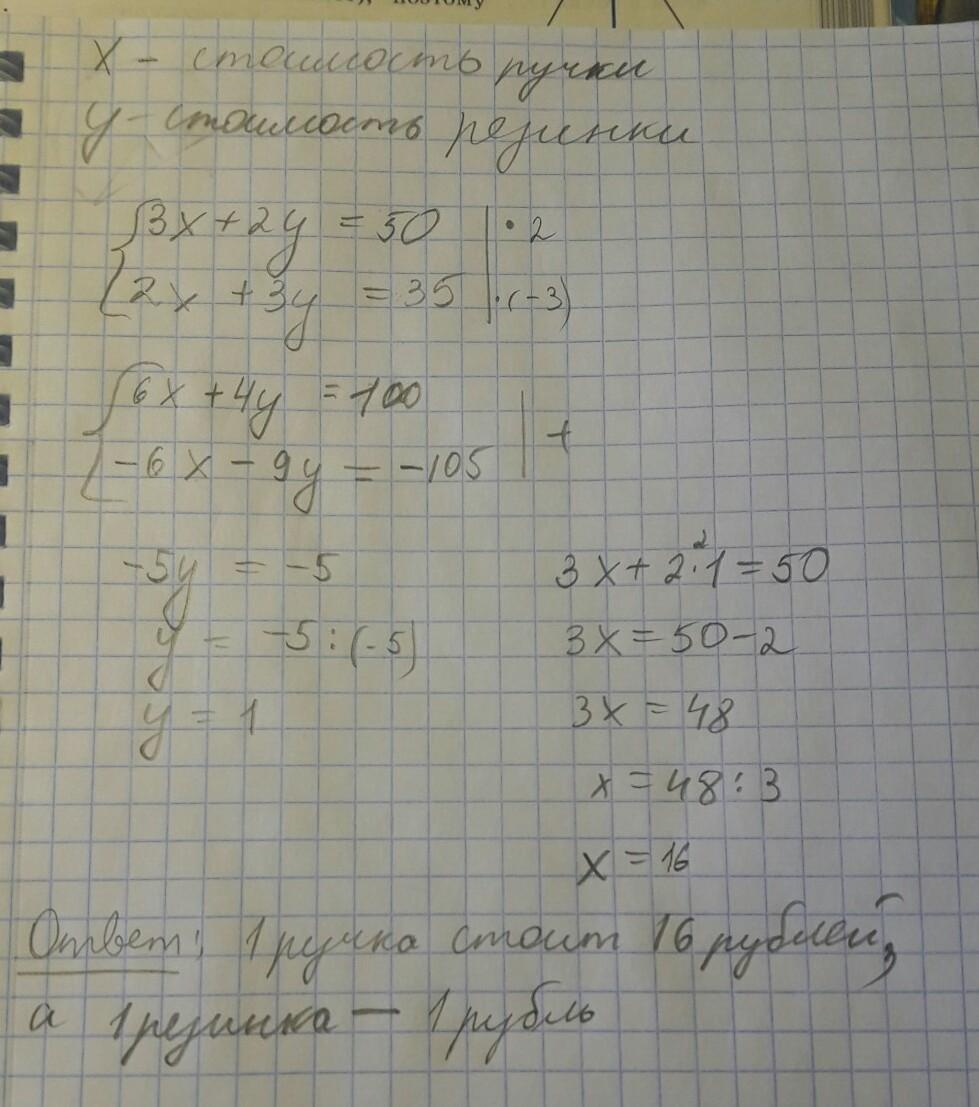 поэтому
x - стоимость ручки
y - стоимость резинки
{3x + 2y = 50 | · 2
{2x + 3y = 35 | · (-3)
{6x + 4y = 100
{-6x - 9y = -105 | +
-5y = -5
y = -5 : (-5)
y = 1
3x + 2 · 1 = 50
2
3x = 50 - 2
3x = 48
x = 48 : 3
x = 16
Ответ: 1 ручка стоит 16 рублей,
а 1 резинка — 1 рубль